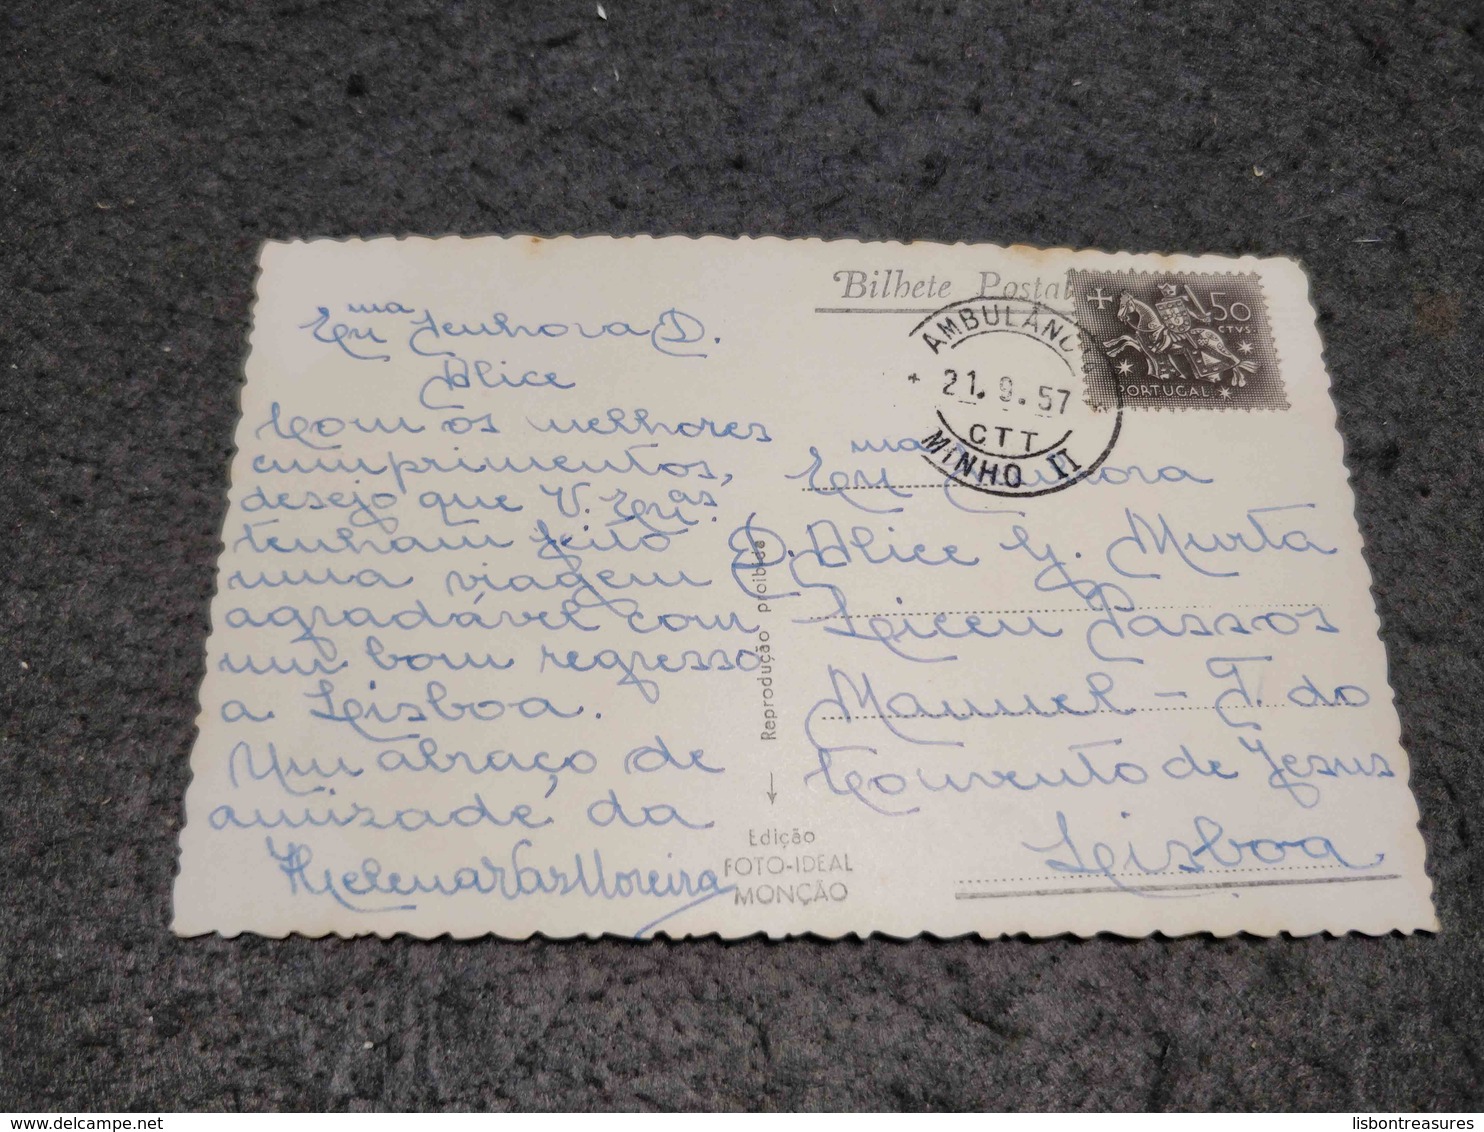 Exma Senhora D.
Alice
Com os melhores
cumprimentos,
desejo que V. Exas.
tenham feito
uma viagem
agradável com
um bom regresso
a Lisboa.
Um abraço de
amizade, da
Helena Vaz Moreira
Bilhete Postal
50
CTVS.
PORTUGAL
AMBULÂNC
21.9.57
CTT
MINHO II
Exma Senhora
D. Alice G. Murta
Liceu Passos
Manuel - T. do
Convento de Jesus
Lisboa
Reprodução proibida
Edição
FOTO-IDEAL
MONÇÃO
lisbontreasures.com